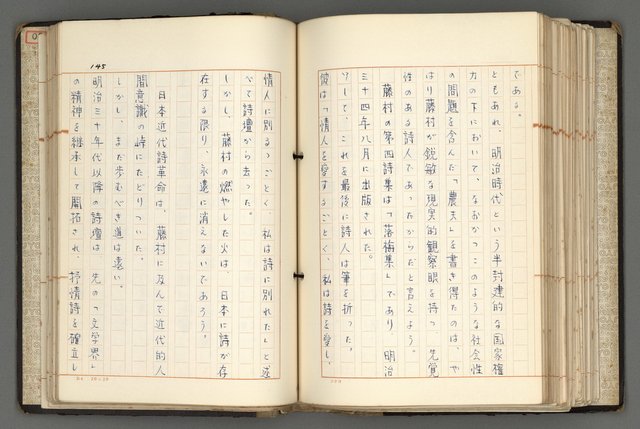 である。
ともあれ、明治時代という半封建的な国家権
力の下において、なおかつこのような社会性
の問題を含んだ「農夫」を書き得たのは、や
はり藤村が鋭敏な現実的観察眼を持つ、先覚
性のある詩人であったからだと言えよう。
藤村の第四詩集は「落梅集」であり、明治
三十四年八月に出版された。
そして、これを最後に詩人は筆を折った。
彼は「情人を愛するごとく、私は詩を愛し、
145
情人に別るゝごとく、私は詩に別れた」と述
べて詩壇から去った。
しかし、藤村の燃やした火は、日本に詩が存
在する限り、永遠に消えないであろう。
日本近代詩革命は、藤村に及んで近代的人
間意識の峠にたどりついた。
しかし、まだ歩むべき道は遠い。
明治三十年代以降の詩壇は、先の「文学界」
の精神を継承して開拓され、抒情詩を確立し